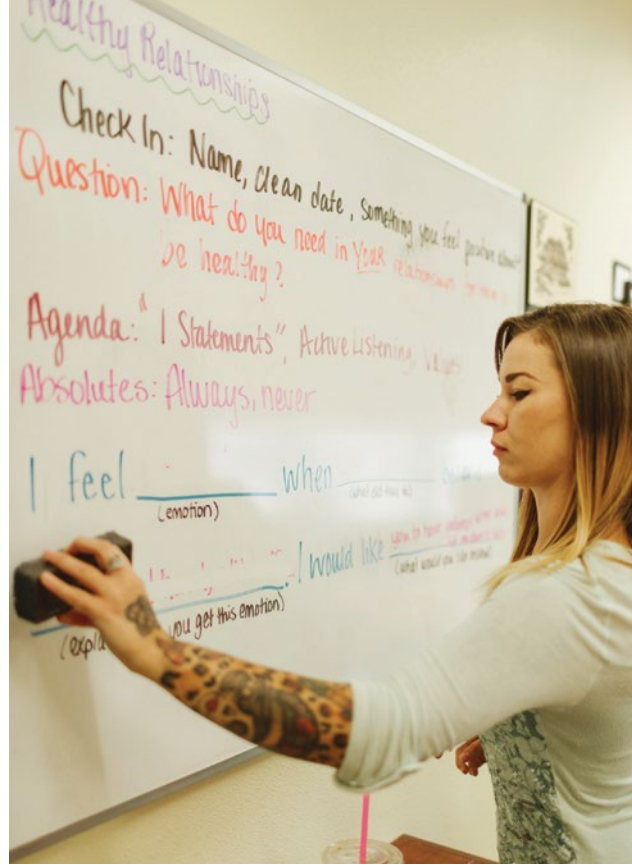 Healthy Relationships
Check In: Name, clean date, Something you feel positive about?
Question: What do you need in Your relationships
be healthy?
Agenda: "I Statements", Active Listening, Values
Absolutes: Always, never
I feel when
(emotion) (what did they do)
I would like you to have
you get this emotion) (what would you like instead)